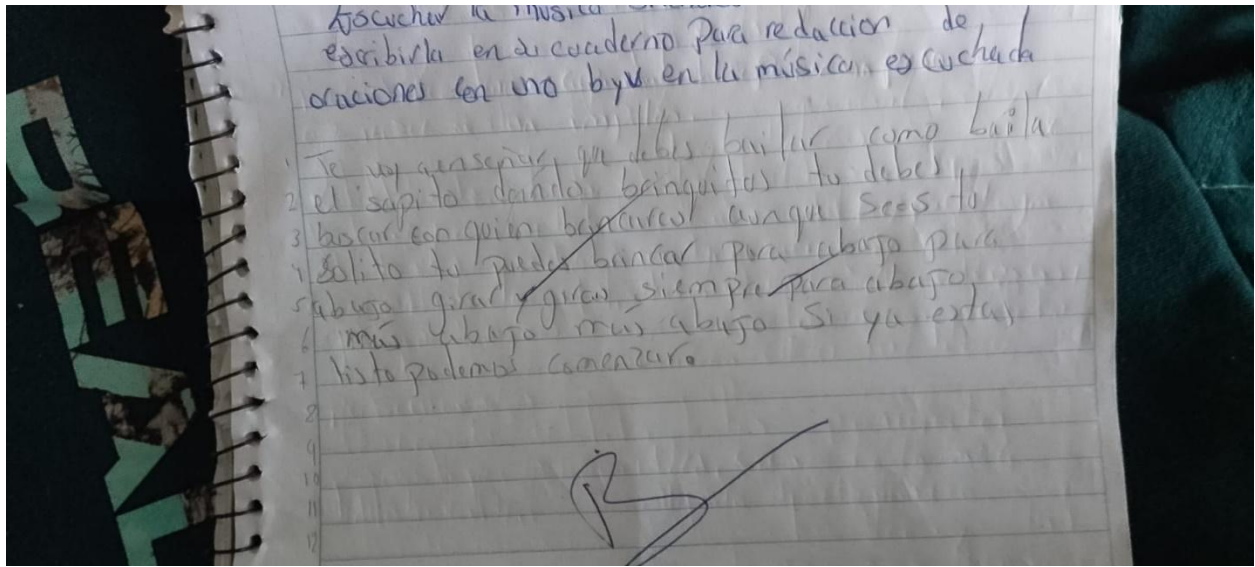 Escuchar la musica
escribirla en su cuaderno para redaccion de
oraciones con uso b y v en la música escuchada
1 Te voy a enseñar, que debes bailar como baila
2 el sapito dando brinquitos tu debes
3 buscar con quien brincar aunque sees tu
4 solito tu puedes brincar para abajo para
5 abajo girar y girar siempre para abajo,
6 más abajo más abajo Si ya estas
7 listo podemos comenzar.
8
9
10
11
12
REAL